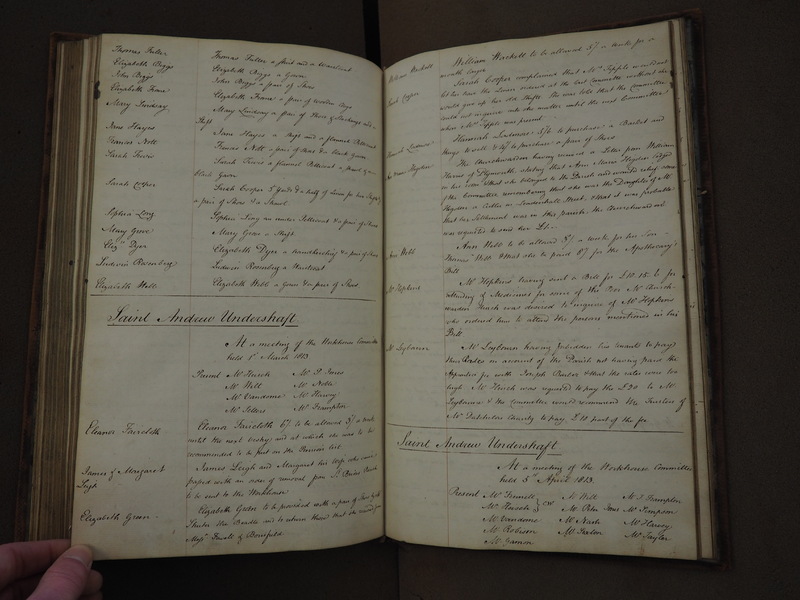 Thomas Fuller Thomas Fuller a Shirt and a Waistcoat
Elizabeth Biggs Elizabeth Biggs a Gown
John Biggs John Biggs a pair of Shoes
Elizabeth Frane Elizabeth Frane a pair of Wooden
Mary Lindsay Mary Lindsay a pair of Shoes & Stockings and a
Shift
Jane Hayes Jane Hayes a Shift and a flannel Petticoat
Frances Nott Frances Nott a pair of Shoes & a black Gown
Sarah a flannel Petticoat a
black Gown
Sarah Cooper Sarah Cooper 5 Yards & a half of Linen for
a pair of Shoes & a Shawl
Sophia Long Sophia Long an under Petticoat & a pair of Shoes
Mary Grove Mary Grove a Shift
Elizth Dyer Elizabeth Dyer a Handkerchief & a pair of Shoes
Ludwin Rosenberg Ludwin Rosenberg a Waistcoat
Elizabeth Webb Elizabeth Webb a Gown & a pair of Shoes
Saint Andrew Undershaft
At a meeting of the Workhouse Committee
held 1st March 1813
Present Mr Hurch Mr P Jones
Mr Witt Mr Noble
Mr Vandome Mr Harvey
Mr Sellers Mr Frampton
Eleanor Faircloth Eleanor Faircloth 6/ to be allowed 3/ a week
until the next Vestry and at which she was to be
recommended to be put on the Pension list
James & Margaret James Leigh and Margaret his Wife who came
Leigh passed with an order of removal from St Brides Parish
to be sent to the Workhouse
Elizabeth Green Elizabeth Green to be provided with a pair of Shoes by
the Beadle and to return those that she received from
Messrs & Bonfield
William Hackett William Hackett to be allowed 5/ a week for a
month longer
Sarah Cooper Sarah Cooper complained that Mr Tipple would not
let her have the Linen ordered at the last Committee without she
would give up her old Shifts. She was told that the Committee
could not enquire into the matter until the next Committee
when Mr Tipple was present
Hannah 5/6 to purchase a Basket and
things to sell & 4/ to purchase a pair of Shoes
Ann Maria Heydon The Churchwarden having received a Letter from William
Harris of Plymouth stating that Ann Maria Heydon
in his town that she belonged to the Parish and wanted relief some
of the Committee remembering that she was the Daughter of Mr
Heydon a Cutler in Leadenhall Street & that it was probable
that her Settlement was in this parish the Churchwarden
was requested to send her £1..
Ann Webb Ann Webb to be allowed 3/ a week for her Son
Thomas Webb & that she be paid 8/ for the Apothecary's
Bill
Mr Hopkins Mr Hopkins having sent a Bill for £10.15.6 for
attending & Medicines for some of the Poor Mr Church
warden Hurch was desired to enquire of Mr Hopkins
who ordered him to attend the persons mentioned in his
Bill
Mr Leyburn Mr Leyburn having forbidden his tenants to pay
their Rates on account of the Parish not having paid the
Apprentice fee with Joseph Barber & that the rates were too
high Mr Hurch was requested to pay the £20 to Mr
Leyburn & the Committee would recommend the Trustees of
Mr Datchelors Charity to pay £10 part of the fee
Saint Andrew Undershaft
At a meeting of the Workhouse Committee
held 5th April 1813
Present Mr Fennell } CW Mr Witt Mr J Frampton
Mr Hurch Mr Peter Jones Mr Simpson
Mr Vandome Mr Nash Mr Harvey
Mr Robson Mr Mr Taylor
Mr Gamon